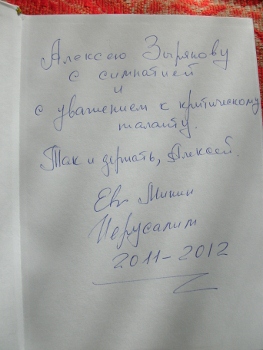 Алексею Зырянову
с симпатией
и
с уважением к критическому
таланту.
Так и держать, Алексей.
Евг Минин
Иерусалим
2011-2012